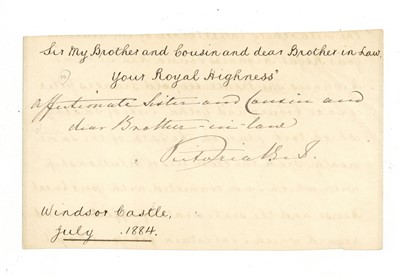 Sir My Brother and Cousin and dear Brother in Law,
Your Royal Highness'
Affectionate Sister and Cousin and
dear Brother-in-law
Victoria R.I.
Windsor Castle,
July .1884.